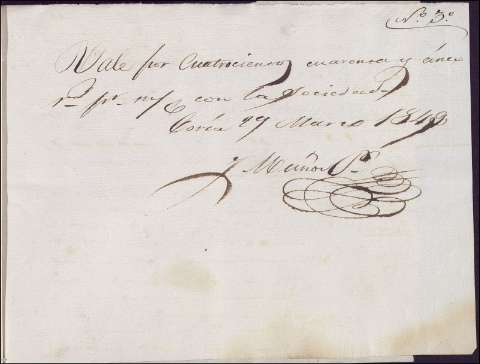 N.º 3.º
Vale por Cuatrocientos cuarenta y cinco
r.s pr. m/ c/ con la Sociedad
Coria 29 Marzo 1849
Muñoz